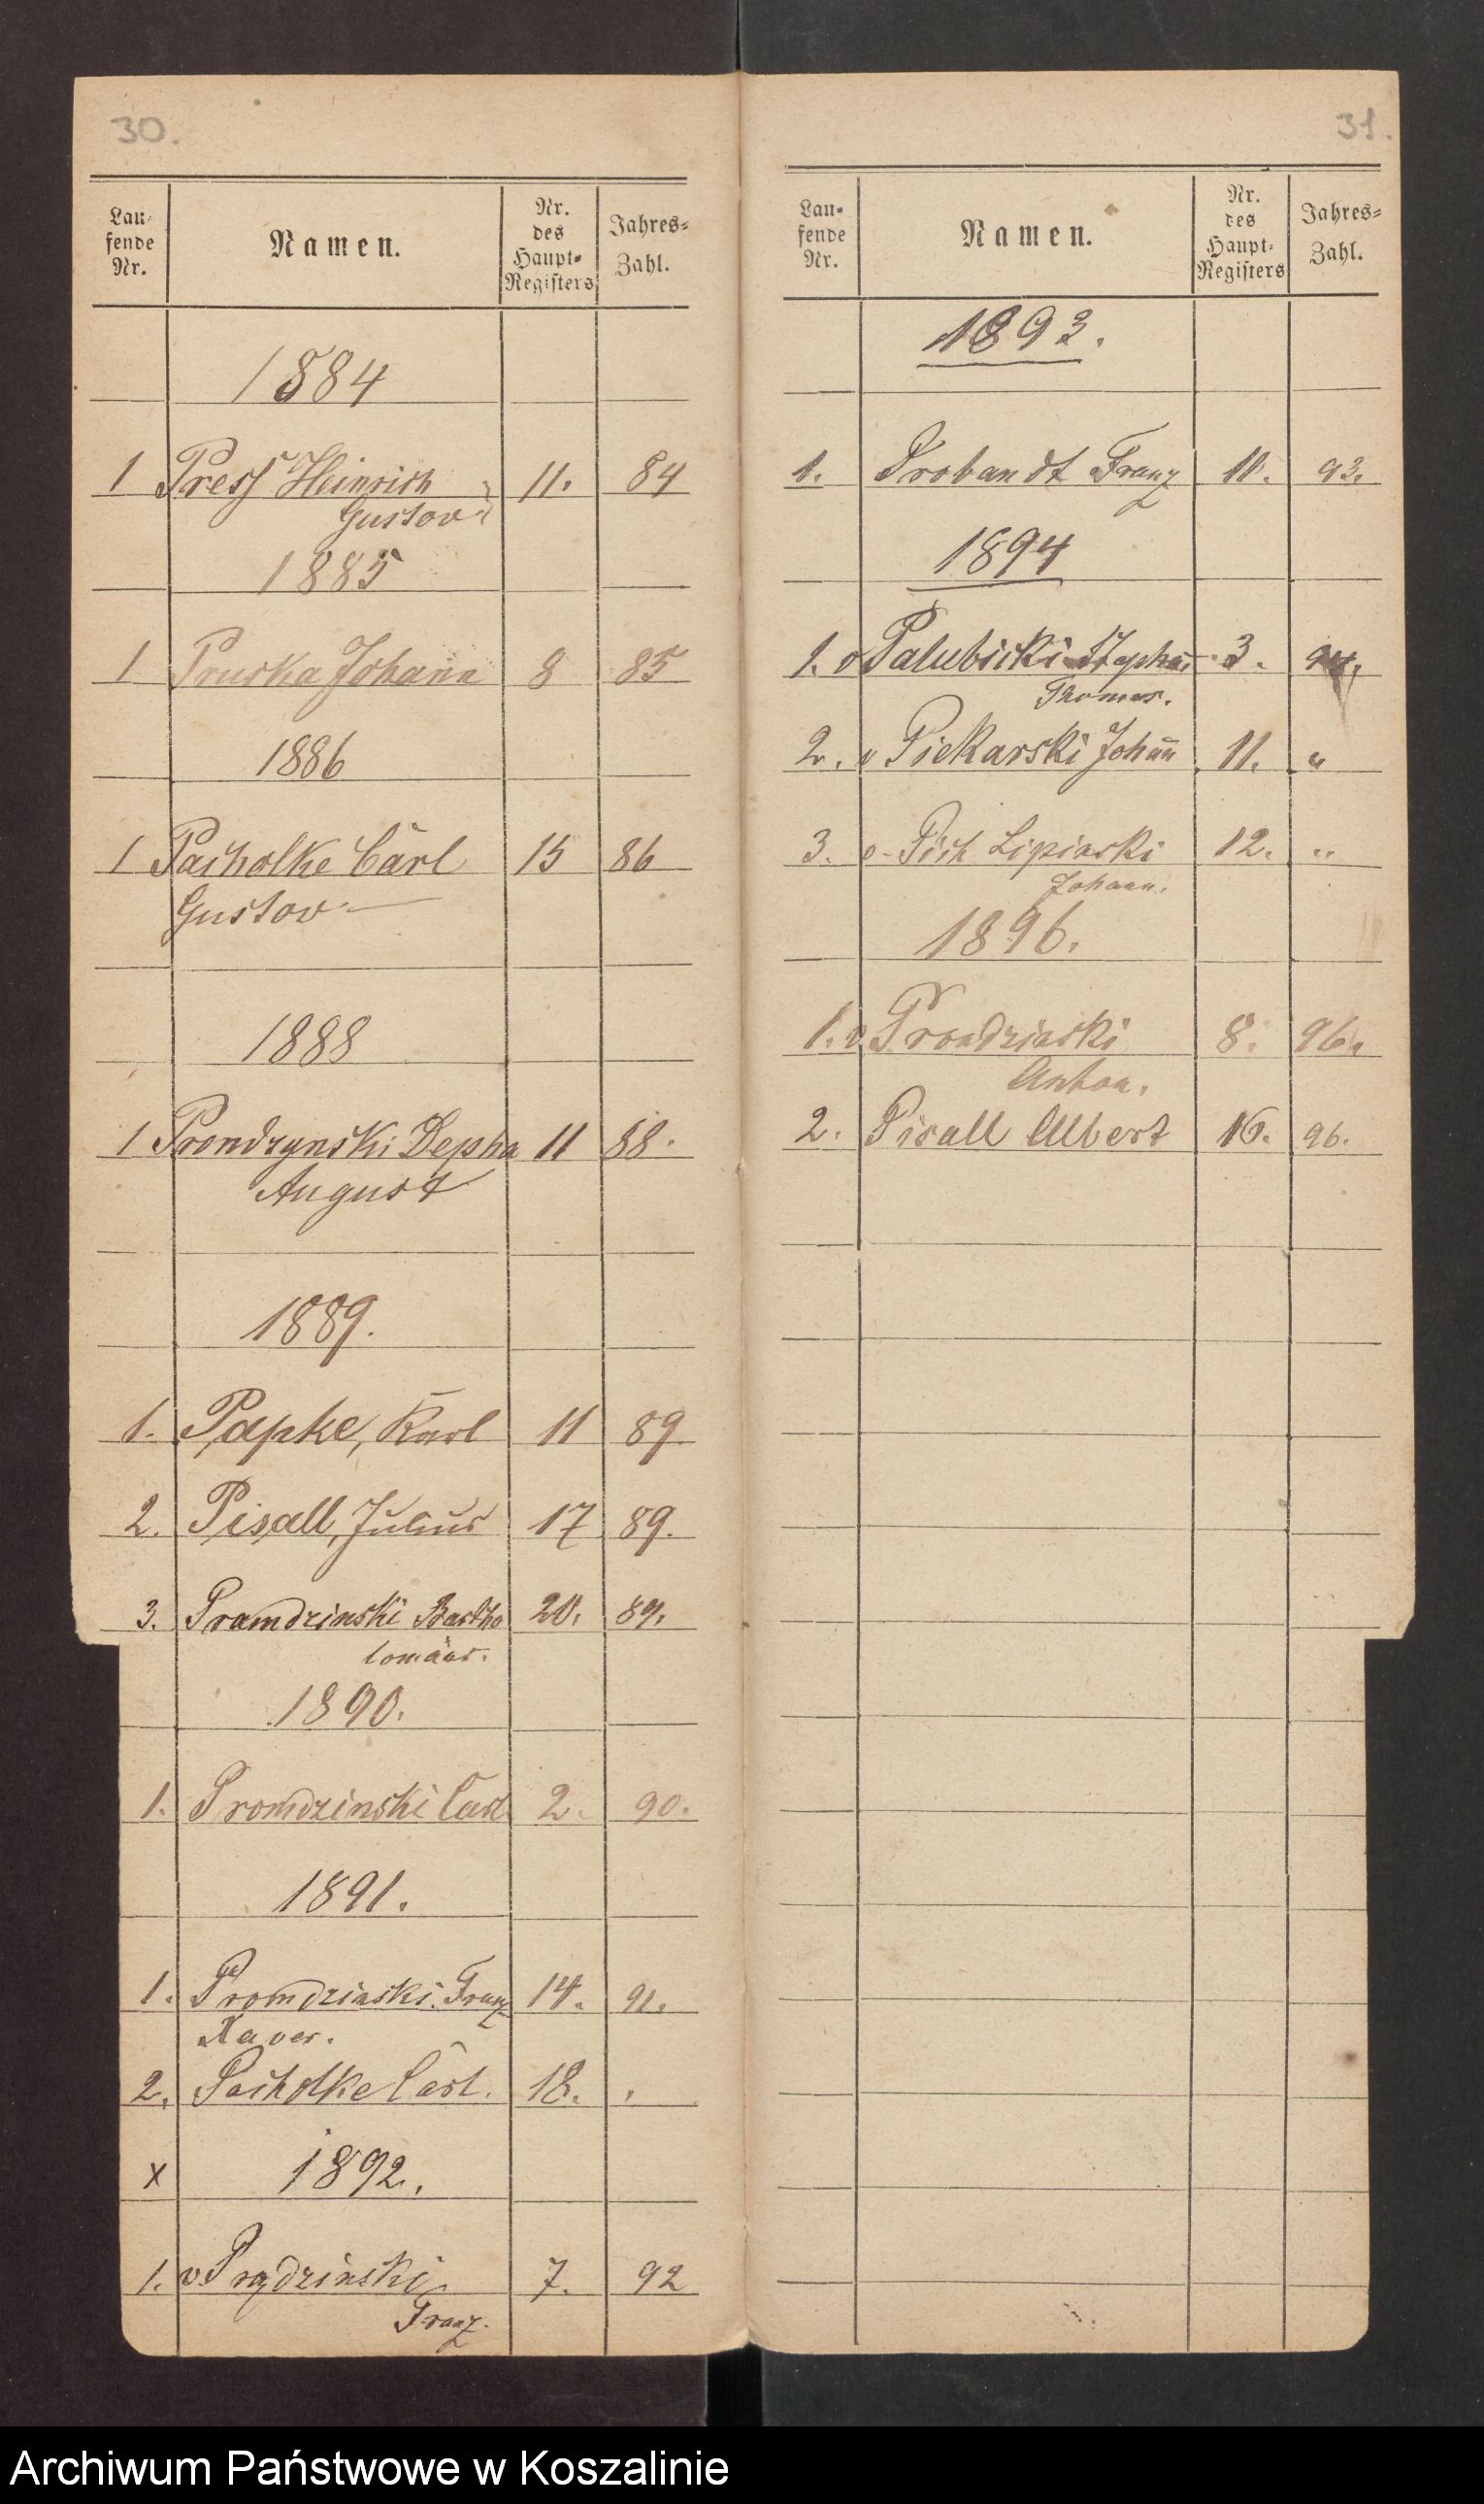 30.
Lau-
fende
Nr.
Namen.
Nr.
des
Haupt-
Registers
Jahres-
Zahl.
1884
1 Press Heinrich 11. 84
Gustov
1885
1 Pruska Johann 8 85
1886
1 Pacholke Carl 15 86
Gustov
1888
1 Prondzynski Depha 11 88.
August
1889.
1. Papke, Karl 11 89
2. Pisall, Julius 17 89.
3. Pramdzinski Bartho 20. 89.
lomäus.
1890.
1. Promdzinski Carl 2. 90.
1891.
1. Promdzinski Franz 14. 91.
Xaver.
2. Pacholke Carl. 18. "
x 1892.
1. v. Prądzinski 7. 92
Franz.
31.
Lau-
fende
Nr.
Namen.
Nr.
des
Haupt-
Registers
Jahres-
Zahl.
1893.
1. Probandt Franz 10. 93.
1894
1. v Palubicki Stephan 3. 94.
Thomas.
2. v Piekarski Johann 11. "
3. v. Pich Lipinski 12. "
Johann.
1896.
1. v. Prondzinski 8. 96.
Anton.
2. Pisall Albert 16. 96.
Archiwum Państwowe w Koszalinie